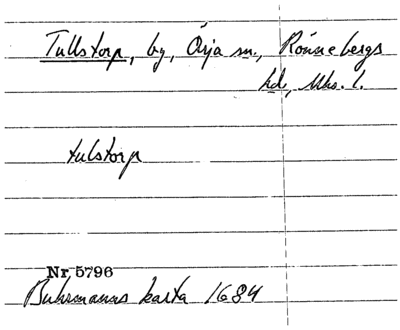 Tullstorp, by, Örja sn, Rönnebergs
hd, Mhs. l.
tulstorp
Nr 5796
Buhrmanns karta 1684